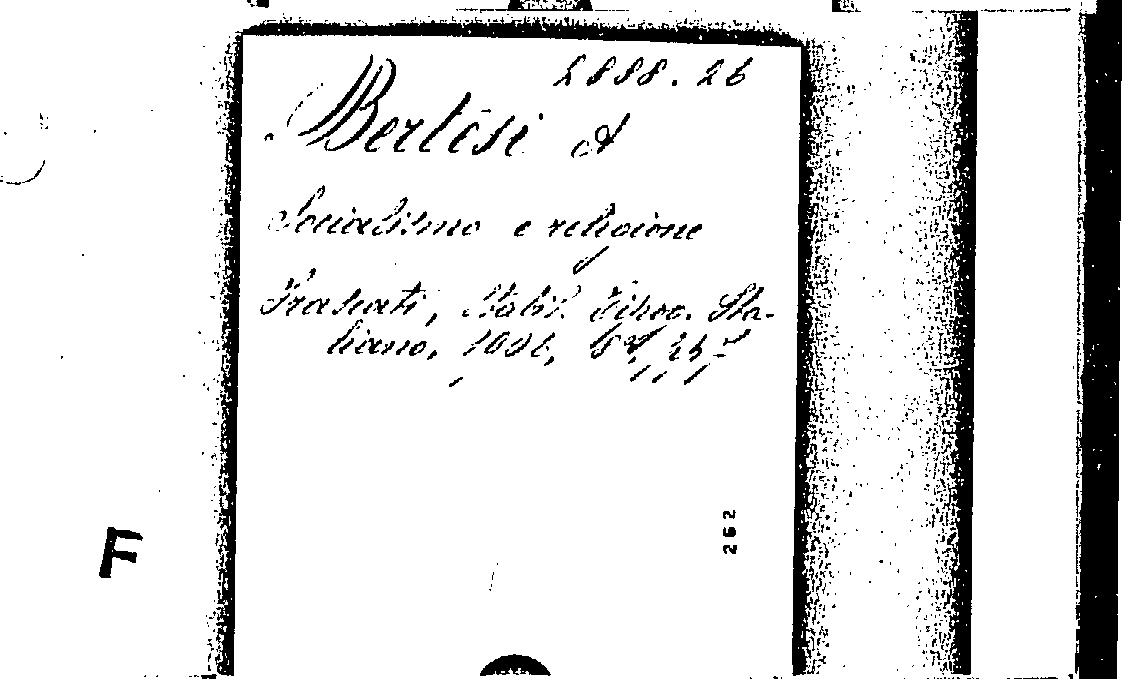 2888.26
Bertosi A
Socialismo e religione
Frascati, Stabil. Tipog. Ita-
liano,
262
F